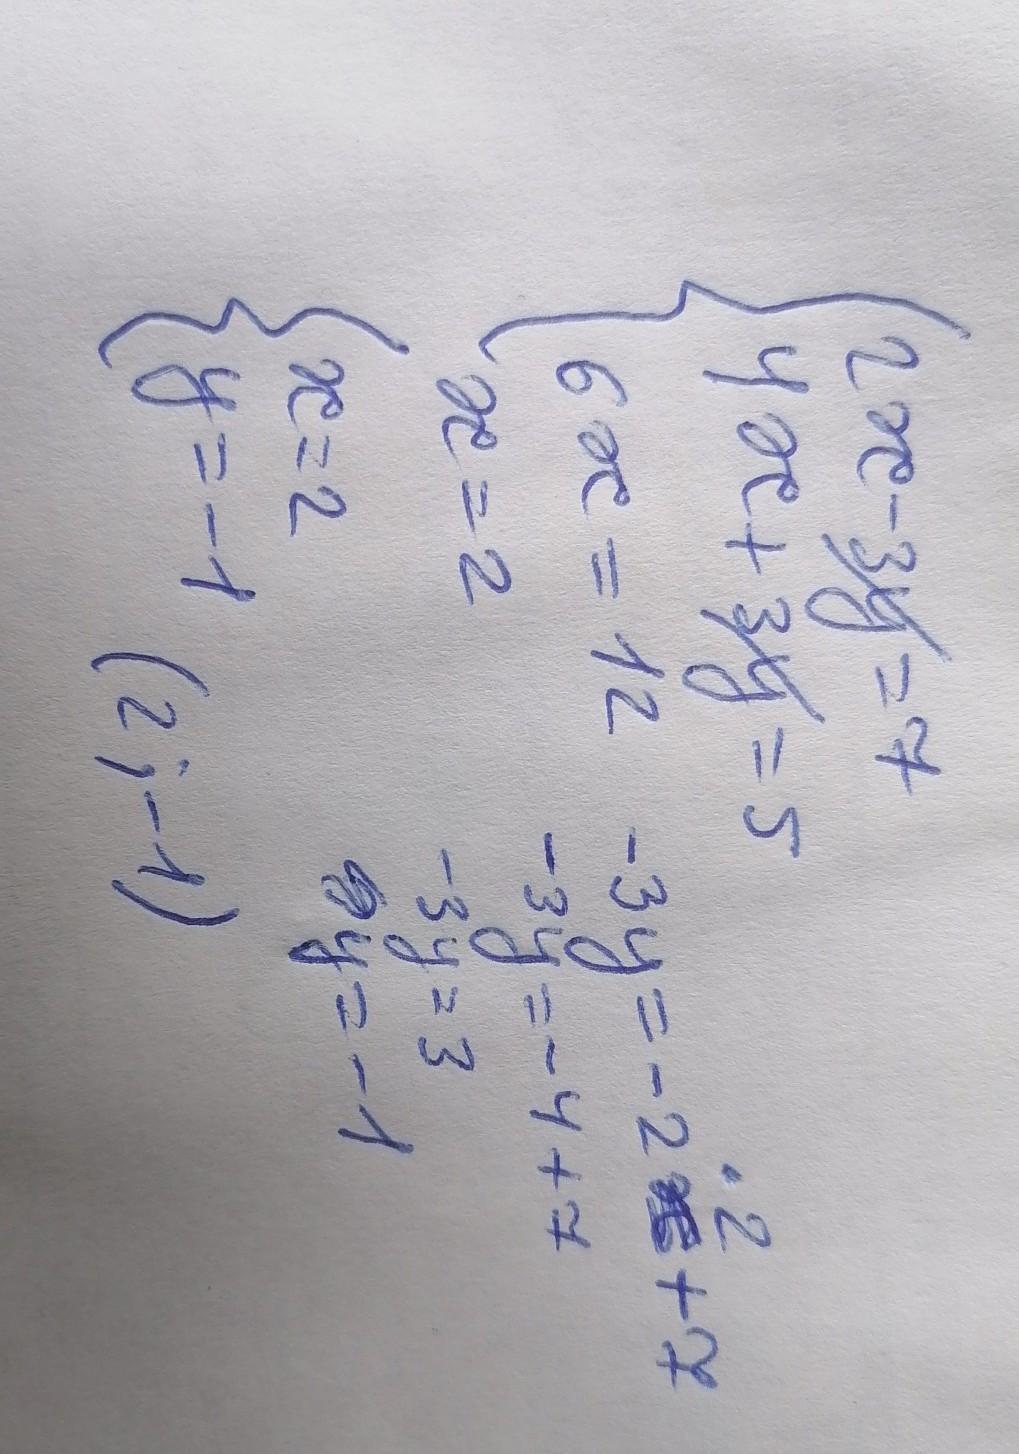 2x-3y=7
4x+3y=5
6x=12
x=2
-3y=-2·2+7
-3y=-4+7
-3y=3
y=-1
x=2
y=-1 (2;-1)